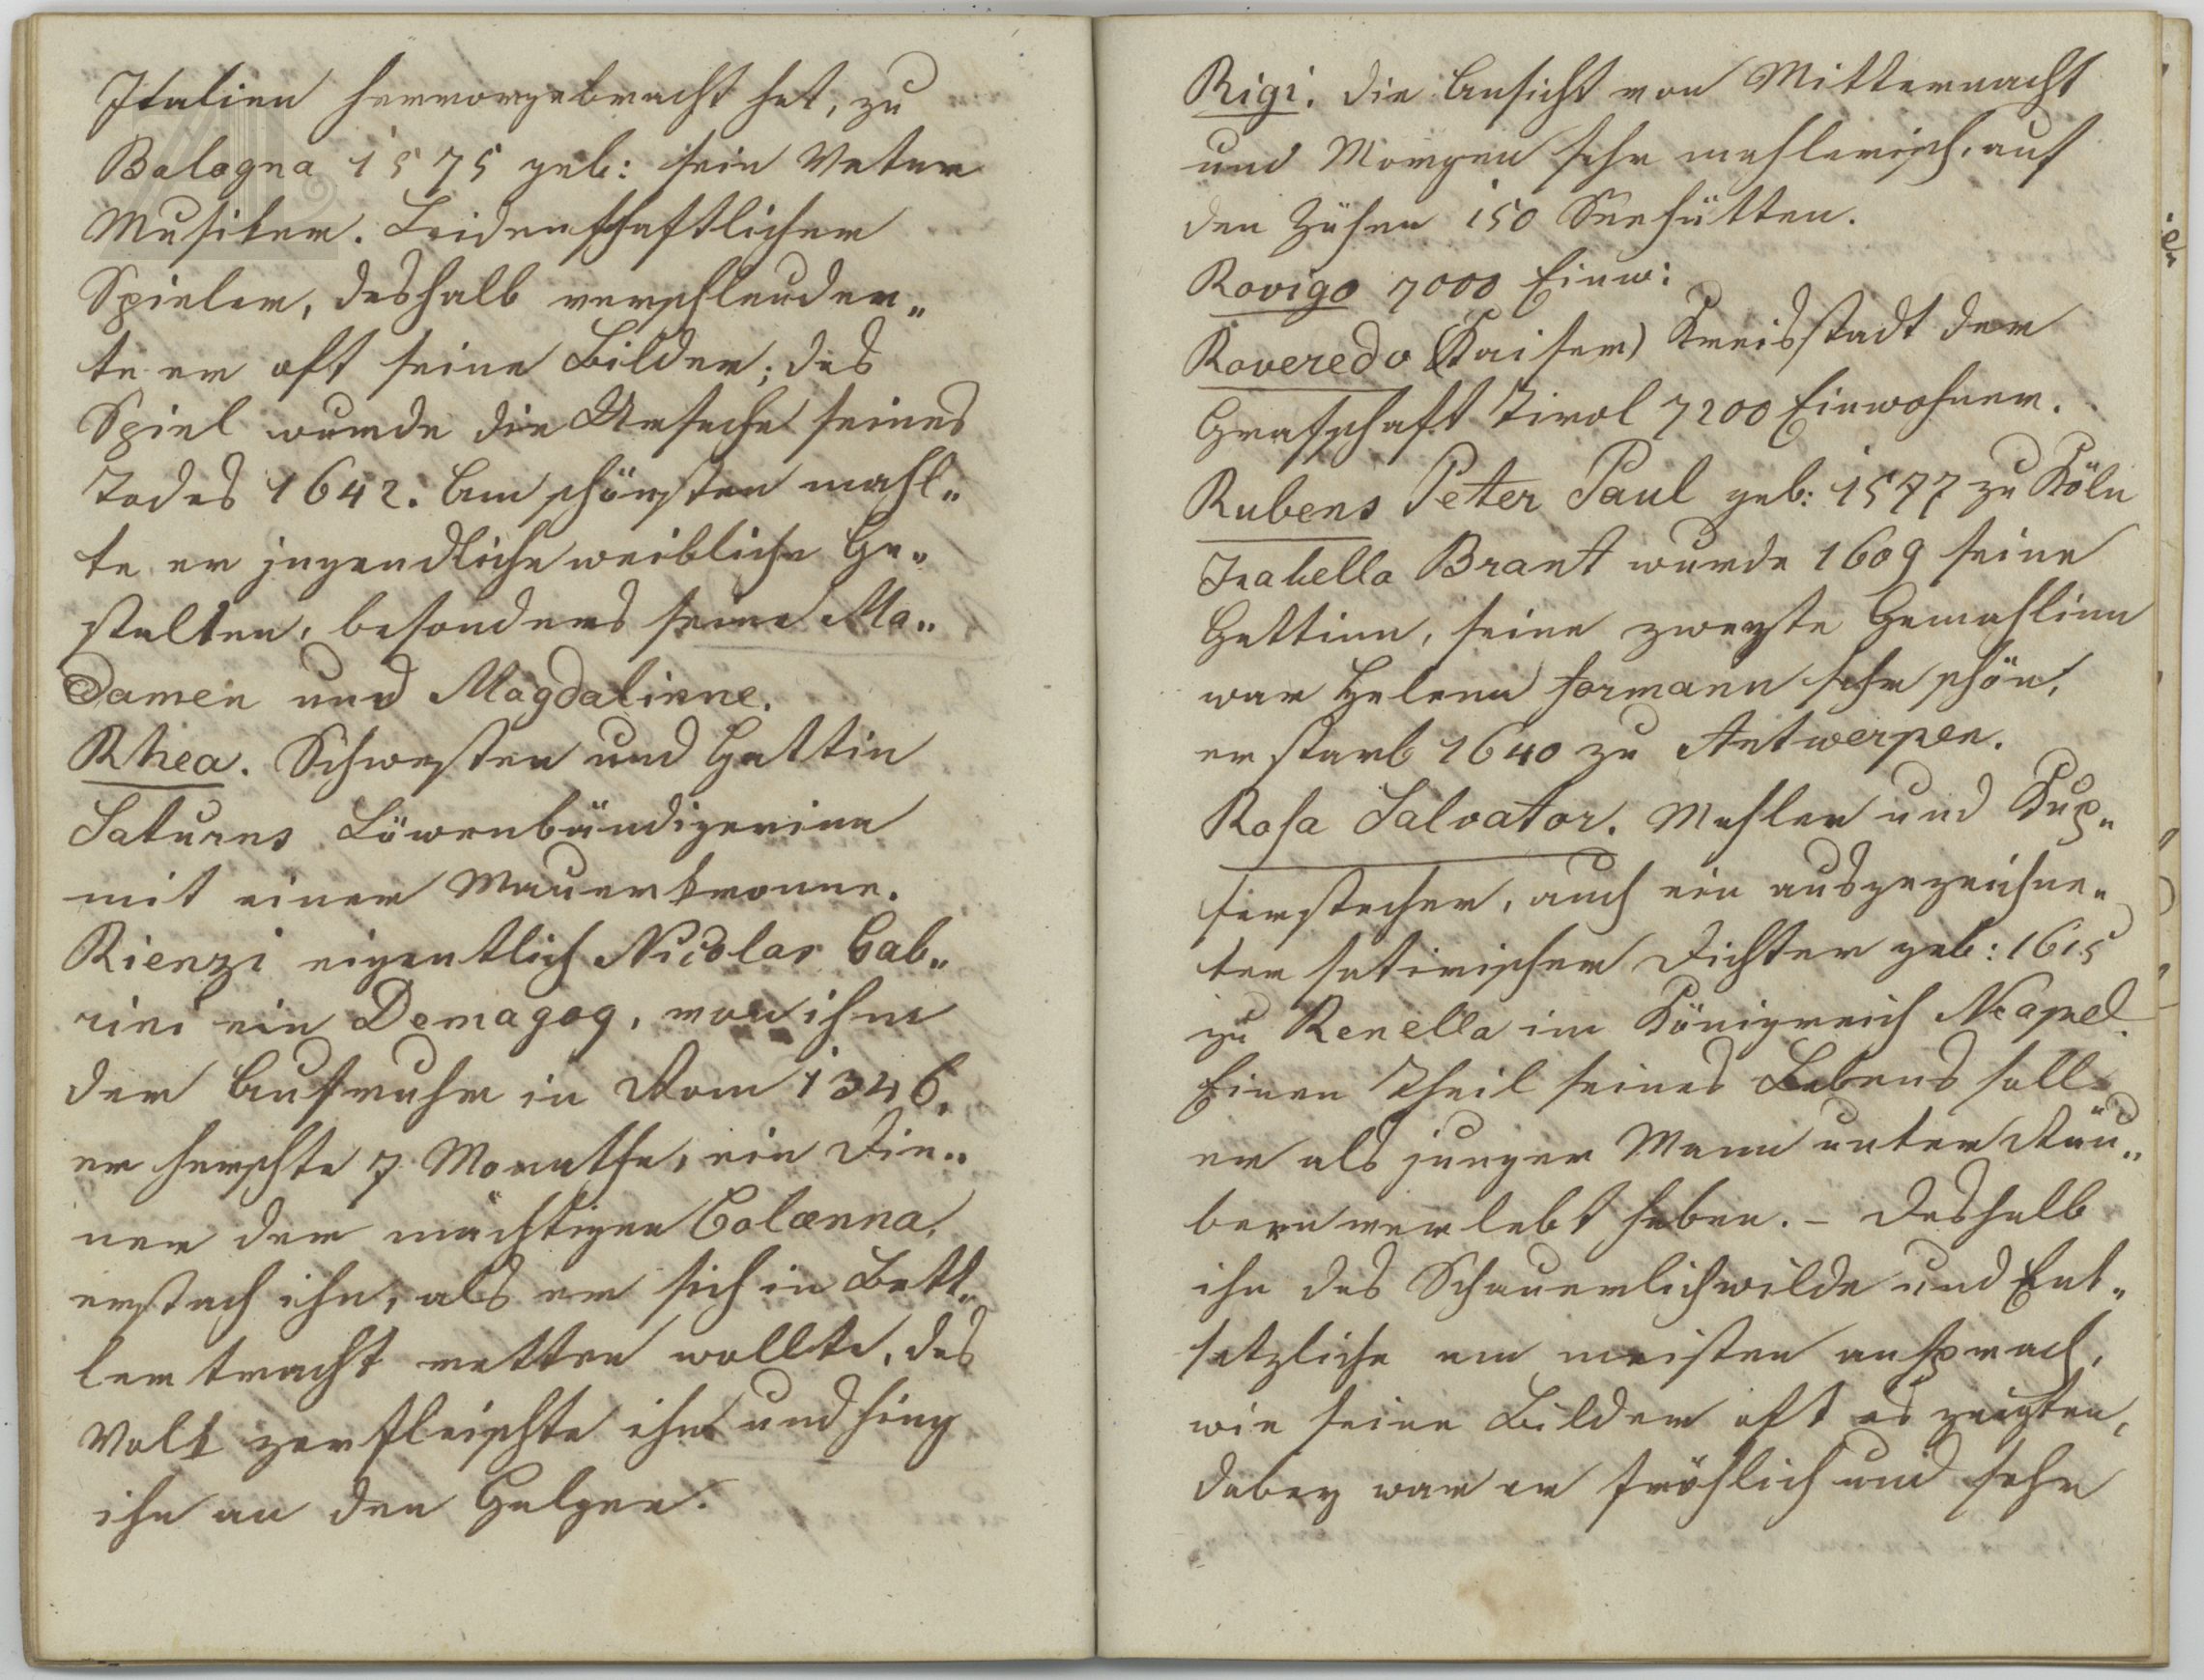 Italien hervorgebracht hat, zu
Bologna 1575 geb: sein Vater
Musiker. Leidenschaftlicher
Spieler, deshalb verschleuder„
te er oft seine Bilder; das
Spiel wurde die Ursache seines
Todes 1642. Am schönsten mahl„
te er jugendliche weibliche Ge„
stalten, besonders seine Ma„
damen und Magdalinne.
Rhea. Schwester und Gattin
Saturns Löwenbändigerinn
mit einer Mauerkronne.
Rienzi eigentlich Nicolas Gab„
rini ein Demagog, von ihm
der Aufruhr in Rom 1346.
er herschte 7 Monathe, ein Die„
ner der mächtigen Colonna,
erstach ihn, als er sich in Bett„
lertracht retten wollte, das
Volk zerfleischte ihn und hing
ihn an den Galgen.
Rigi. die Ansicht von Mitternacht
und Morgen sehr mahlerisch, auf
den Höhen 150 Sennhütten.
Rovigo 7000 Einw:
Roveredo (Kaiser) Kreisstadt der
Grafschaft Tirol 7200 Einwohner.
Rubens Peter Paul geb: 1577 zu Köln
Isabella Brant wurde 1609 seine
Gattinn, seine zweyte Gemahlinn
war Helena formann sehr schön,
er starb 1640 zu Antwerpen.
Rosa Salvator. Mahler und Kup„
ferstecher, auch ein ausgezeichne„
ter satirischer Dichter geb: 1615
zu Renella im Königreich Neapel.
Einen Theil seines Lebens soll
er als junger Mann unter Räu„
bern verlebt haben. – deshalb
ihn das Schauerlichwilde und Ent„
setzliche am meisten ansprach,
wie seine Bilder oft es zeigten,
dabey war er fröhlich und sehr